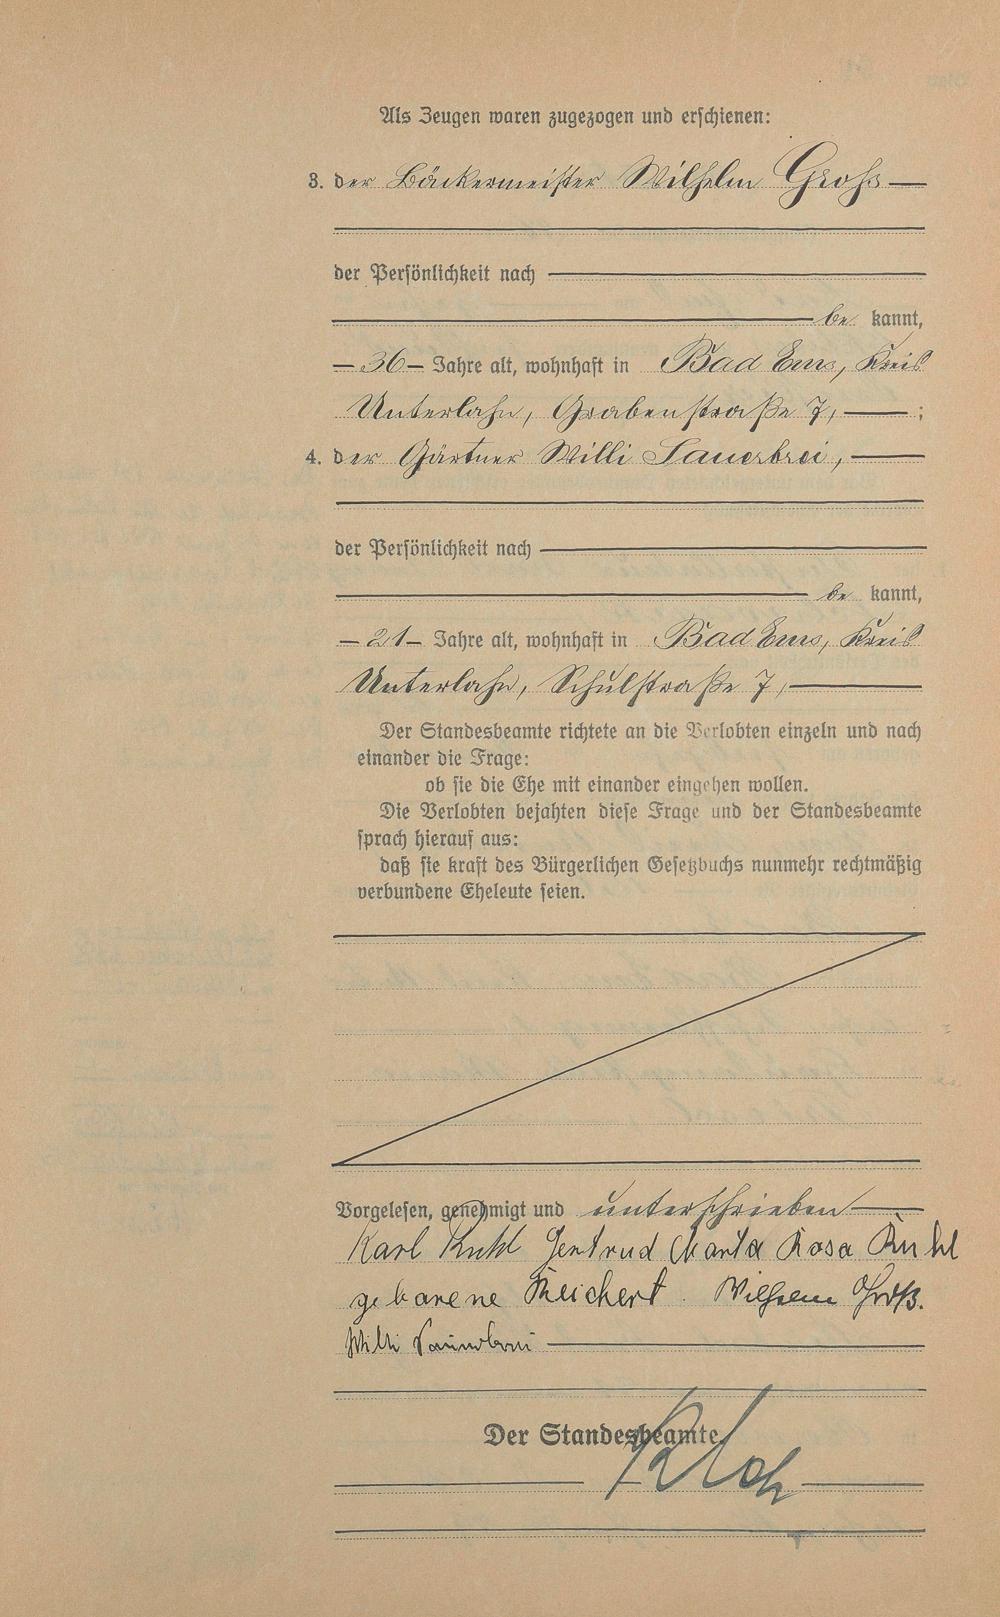 Als Zeugen waren zugezogen und erschienen:
3. der Bäckermeister Wilhelm Groß
der Persönlichkeit nach
be kannt,
36 Jahre alt, wohnhaft in Bad Ems, Kreis
Unterlahn, Grabenstraße 7, ;
4. der Gärtner Willi Sauerbrei,
der Persönlichkeit nach
be kannt,
21 Jahre alt, wohnhaft in Bad Ems, Kreis
Unterlahn, Schulstraße 7,
Der Standesbeamte richtete an die Verlobten einzeln und nach
einander die Frage:
ob sie die Ehe mit einander eingehen wollen.
Die Verlobten bejahten diese Frage und der Standesbeamte
sprach hierauf aus:
daß sie kraft des Bürgerlichen Gesetzbuchs nunmehr rechtmäßig
verbundene Eheleute seien.
Vorgelesen, genehmigt und unterschrieben
Karl Ruhl Gertrud Marta Rosa Ruhl
geborene Reichert. Wilhelm Groß.
Willi Sauerbrei
Der Standesbeamte.